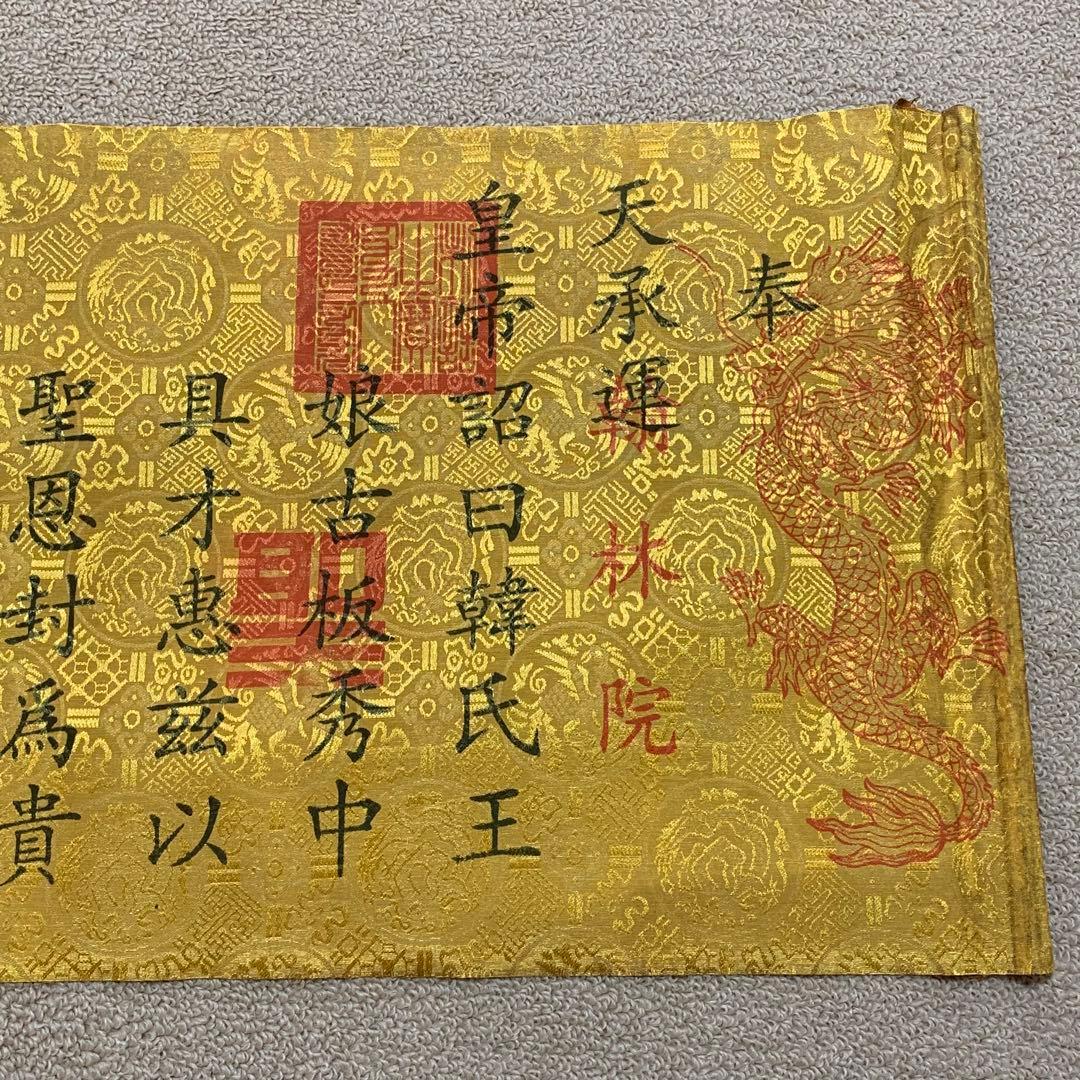 奉
天承運
皇帝詔曰韓氏王
娘古板秀中
具才惠兹以
聖恩封爲貴
翰林院